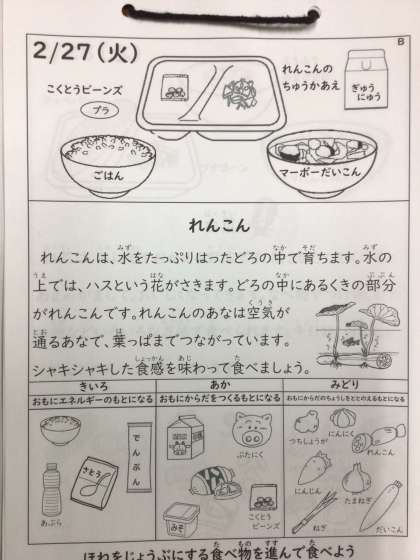 B
2/27(火)
こくとうビーンズ
プラ
れんこんの
ちゅうかあえ
ぎゅう
にゅう
ごはん
マーボーだいこん
れんこん
れんこんは、水をたっぷりはったどろの中で育ちます。水の
上では、ハスという花がさきます。どろの中にあるくきの部分
がれんこんです。れんこんのあなは空気が
通るあなで、葉っぱまでつながっています。
シャキシャキした食感を味わって食べましょう。
きいろ
おもにエネルギーのもとになる
あぶら
さとう
でんぷん
あか
おもにからだをつくるもとになる
ぶたにく
みそ
こくとう
ビーンズ
みどり
おもにからだのちょうしをととのえるもとになる
つちしょうが
にんにく
れんこん
にんじん
たまねぎ
ねぎ
だいこん
ほねをじょうぶにする食べ物を進んで食べよう